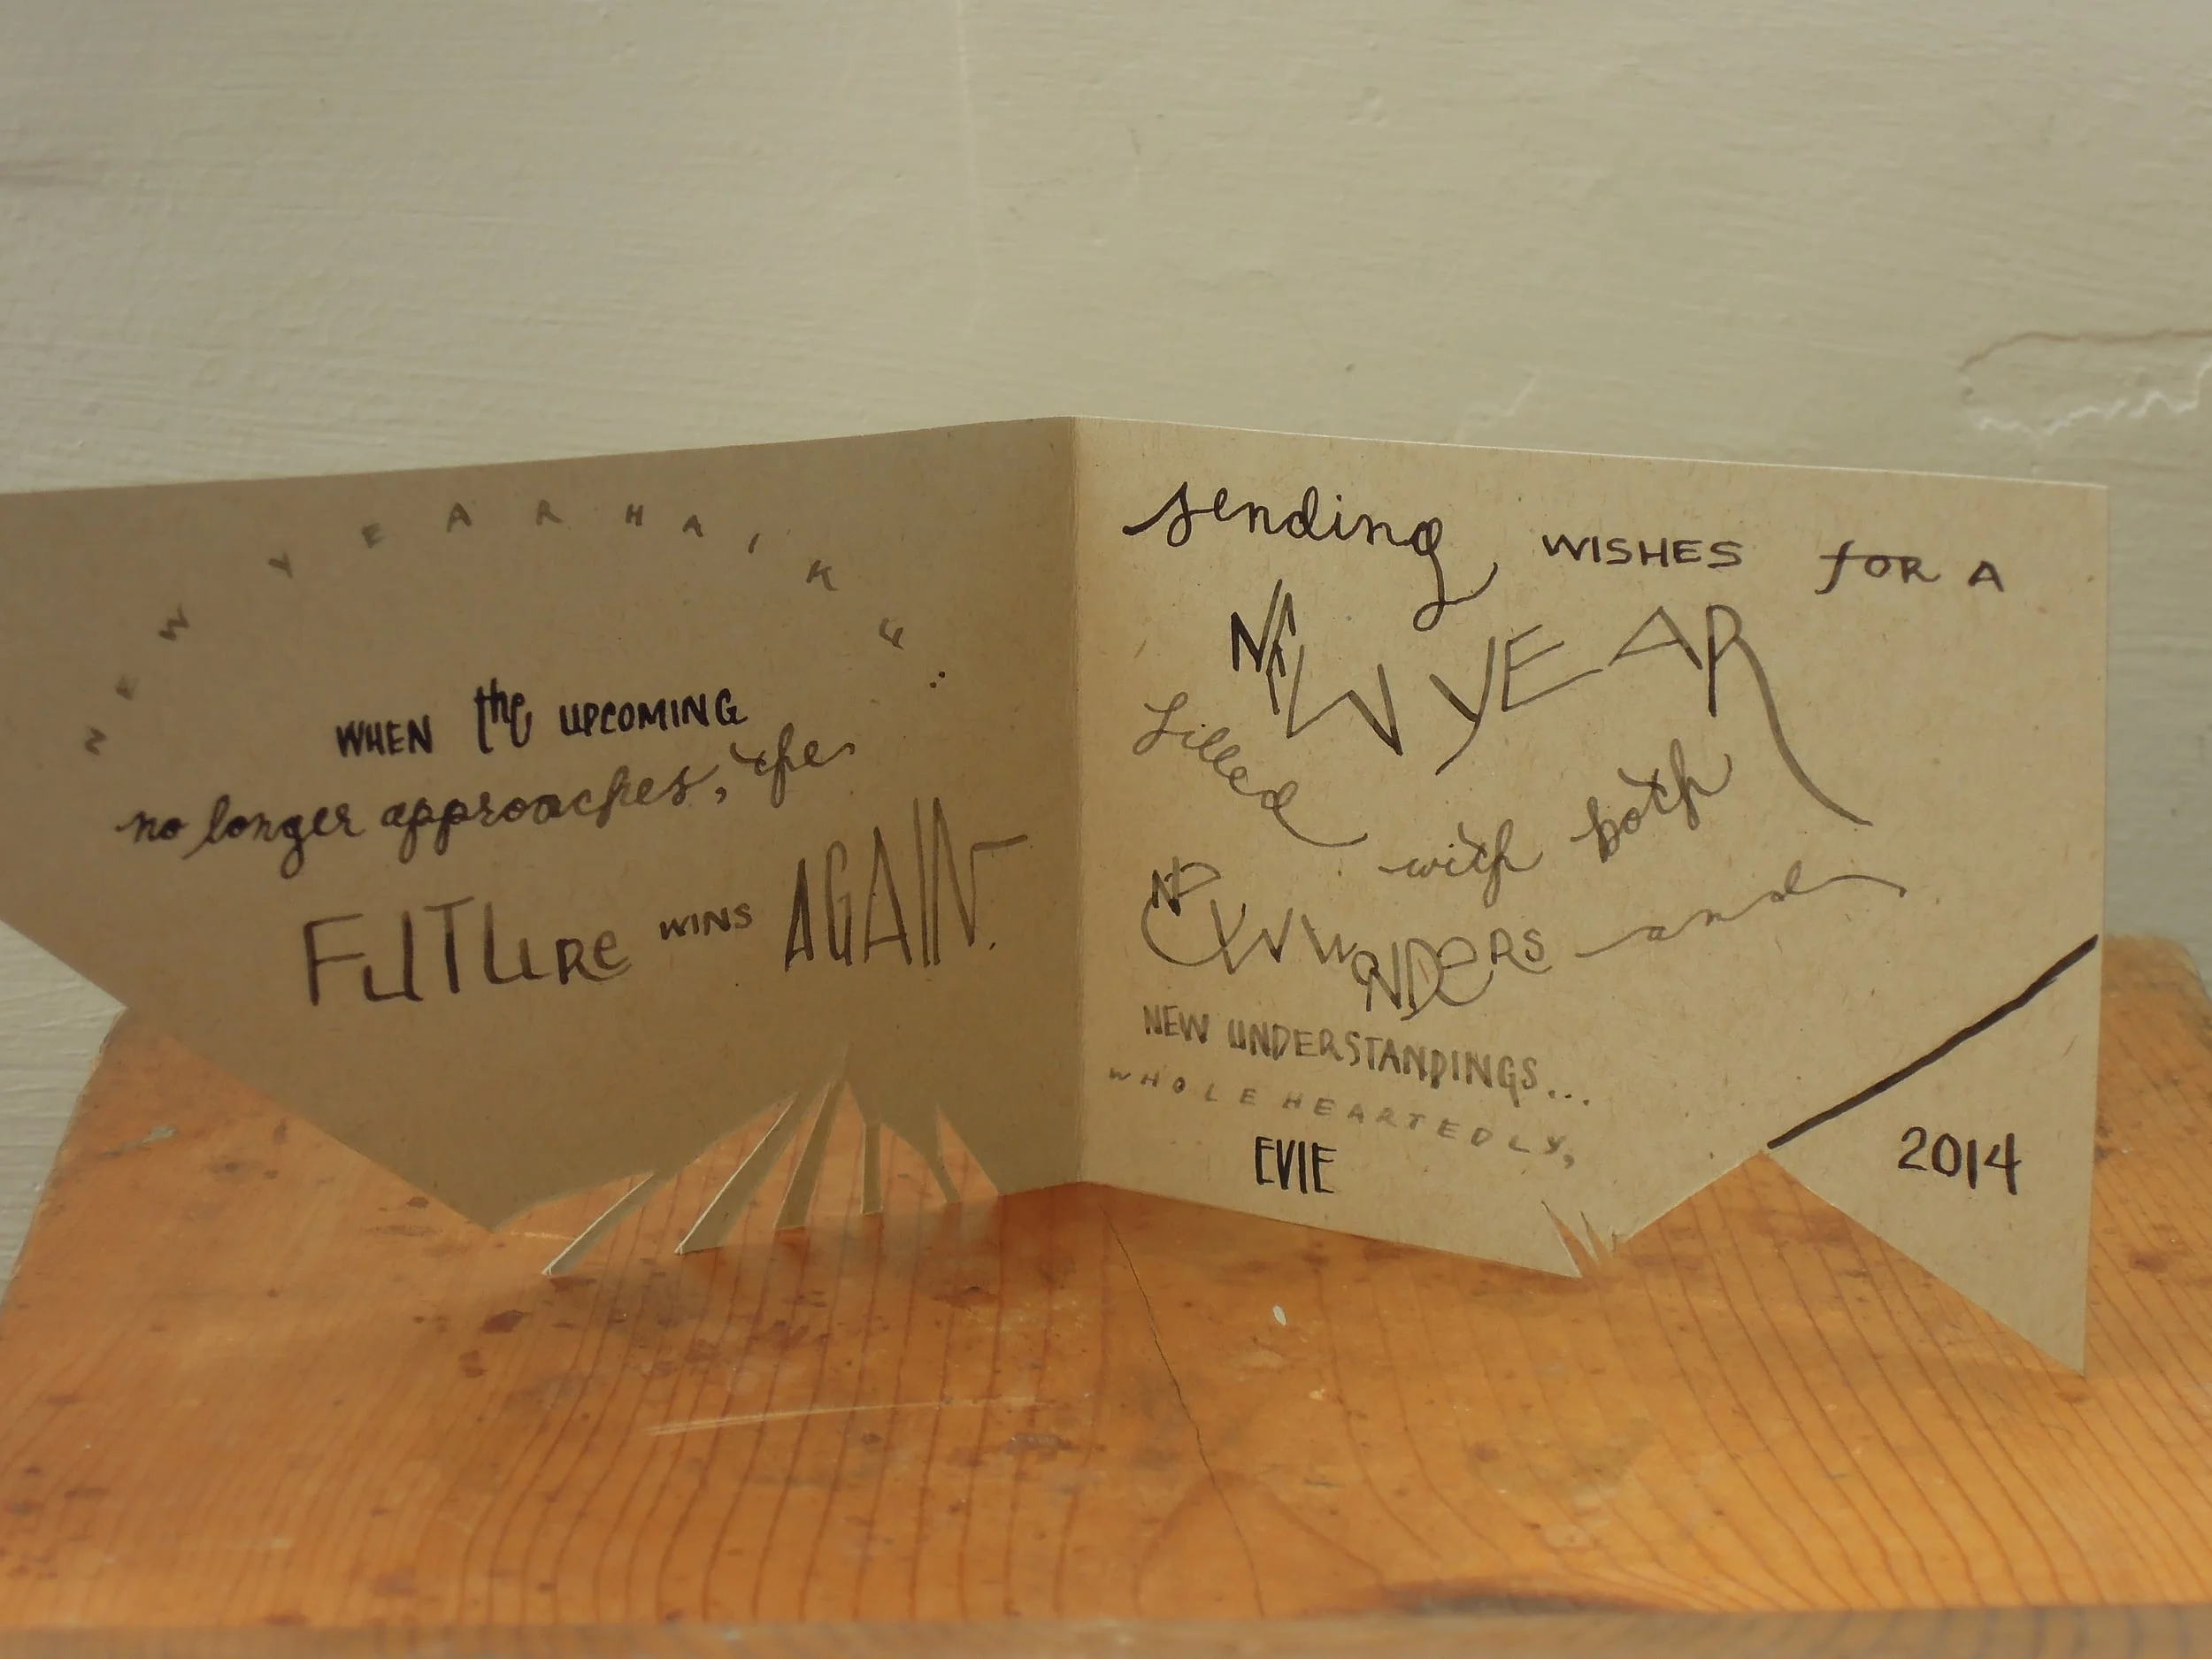 NEW YEAR HAIKU:
WHEN the UPCOMING
no longer approaches, the
FUTURE WINS AGAIN.
sending WISHES fOR A
NEW YEAR
filled with both
NEW WONDERS and
NEW UNDERSTANDINGS...
WHOLEHEARTEDLY,
EVIE
2014